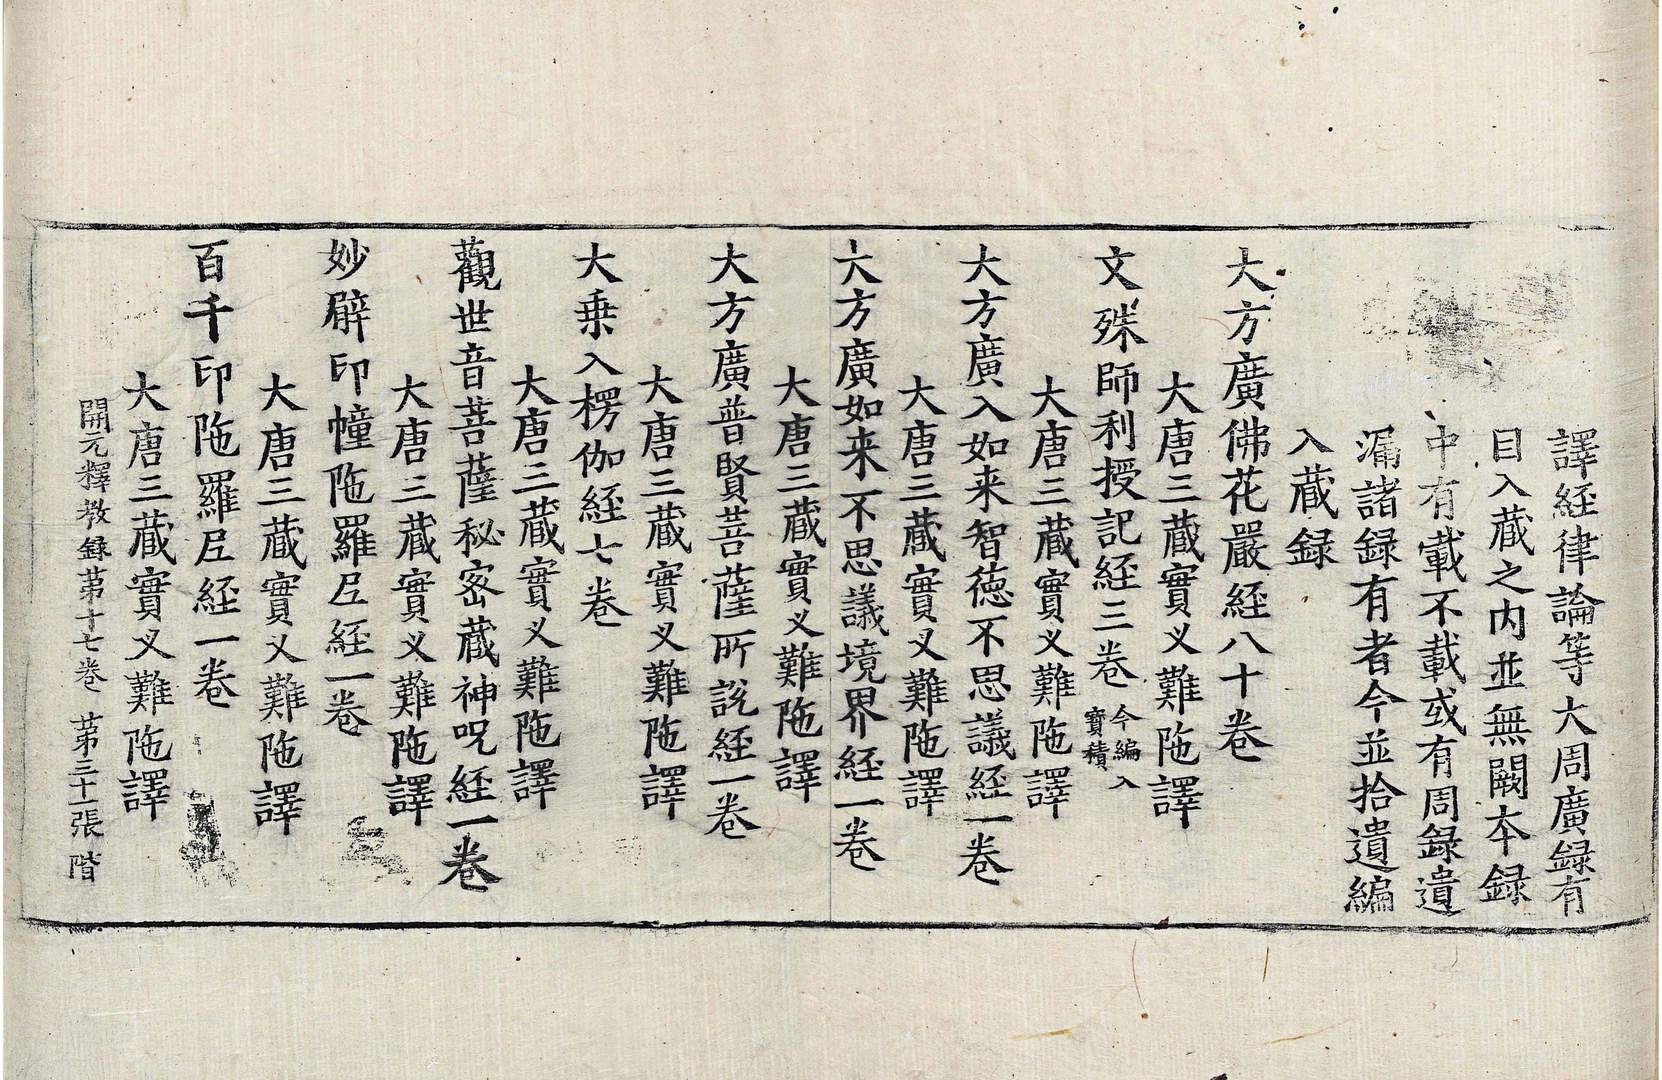 譯経律論等大周廣録有
目入蔵之内並無闕夲録
中有載不載或有周録遺
漏諸録有者今並拾遺編
入蔵録
大方廣佛花嚴経八十卷
大唐三藏實叉難陁譯
文殊師利授記経三卷 今編入
寶積
大唐三藏實叉難陁譯
大方廣入如来智徳不思議経一卷
大唐三藏實叉難陁譯
大方廣如来不思議境界経一卷
大唐三藏實叉難陁譯
大方廣普賢菩薩所說経一卷
大唐三藏實叉難陁譯
大乗入楞伽経七卷
大唐三藏實叉難陁譯
觀世音菩薩秘宻藏神呪経一卷
大唐三藏實叉難陁譯
妙臂印幢陁羅尼経一卷
大唐三藏實叉難陁譯
百千印陁羅尼経一卷
大唐三藏實叉難陁譯
開元釋教録第十七卷 第三十一張 階